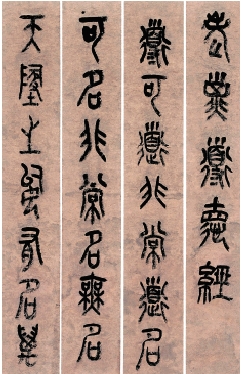 老子道德經
道可道非常道名
可名非常名無名
天地之始有名萬